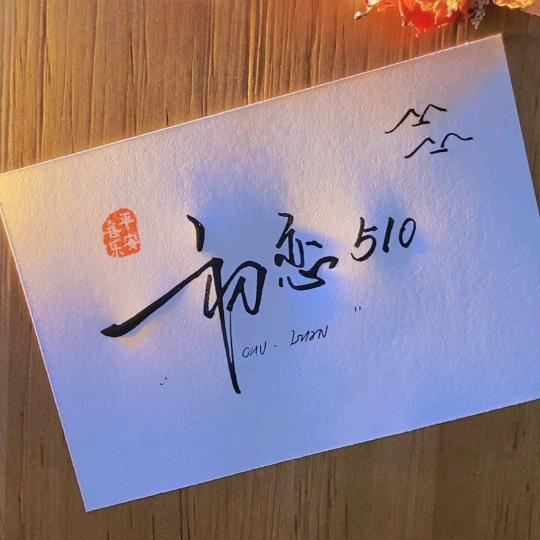 平安
喜乐
初恋510
CHU. LIAN